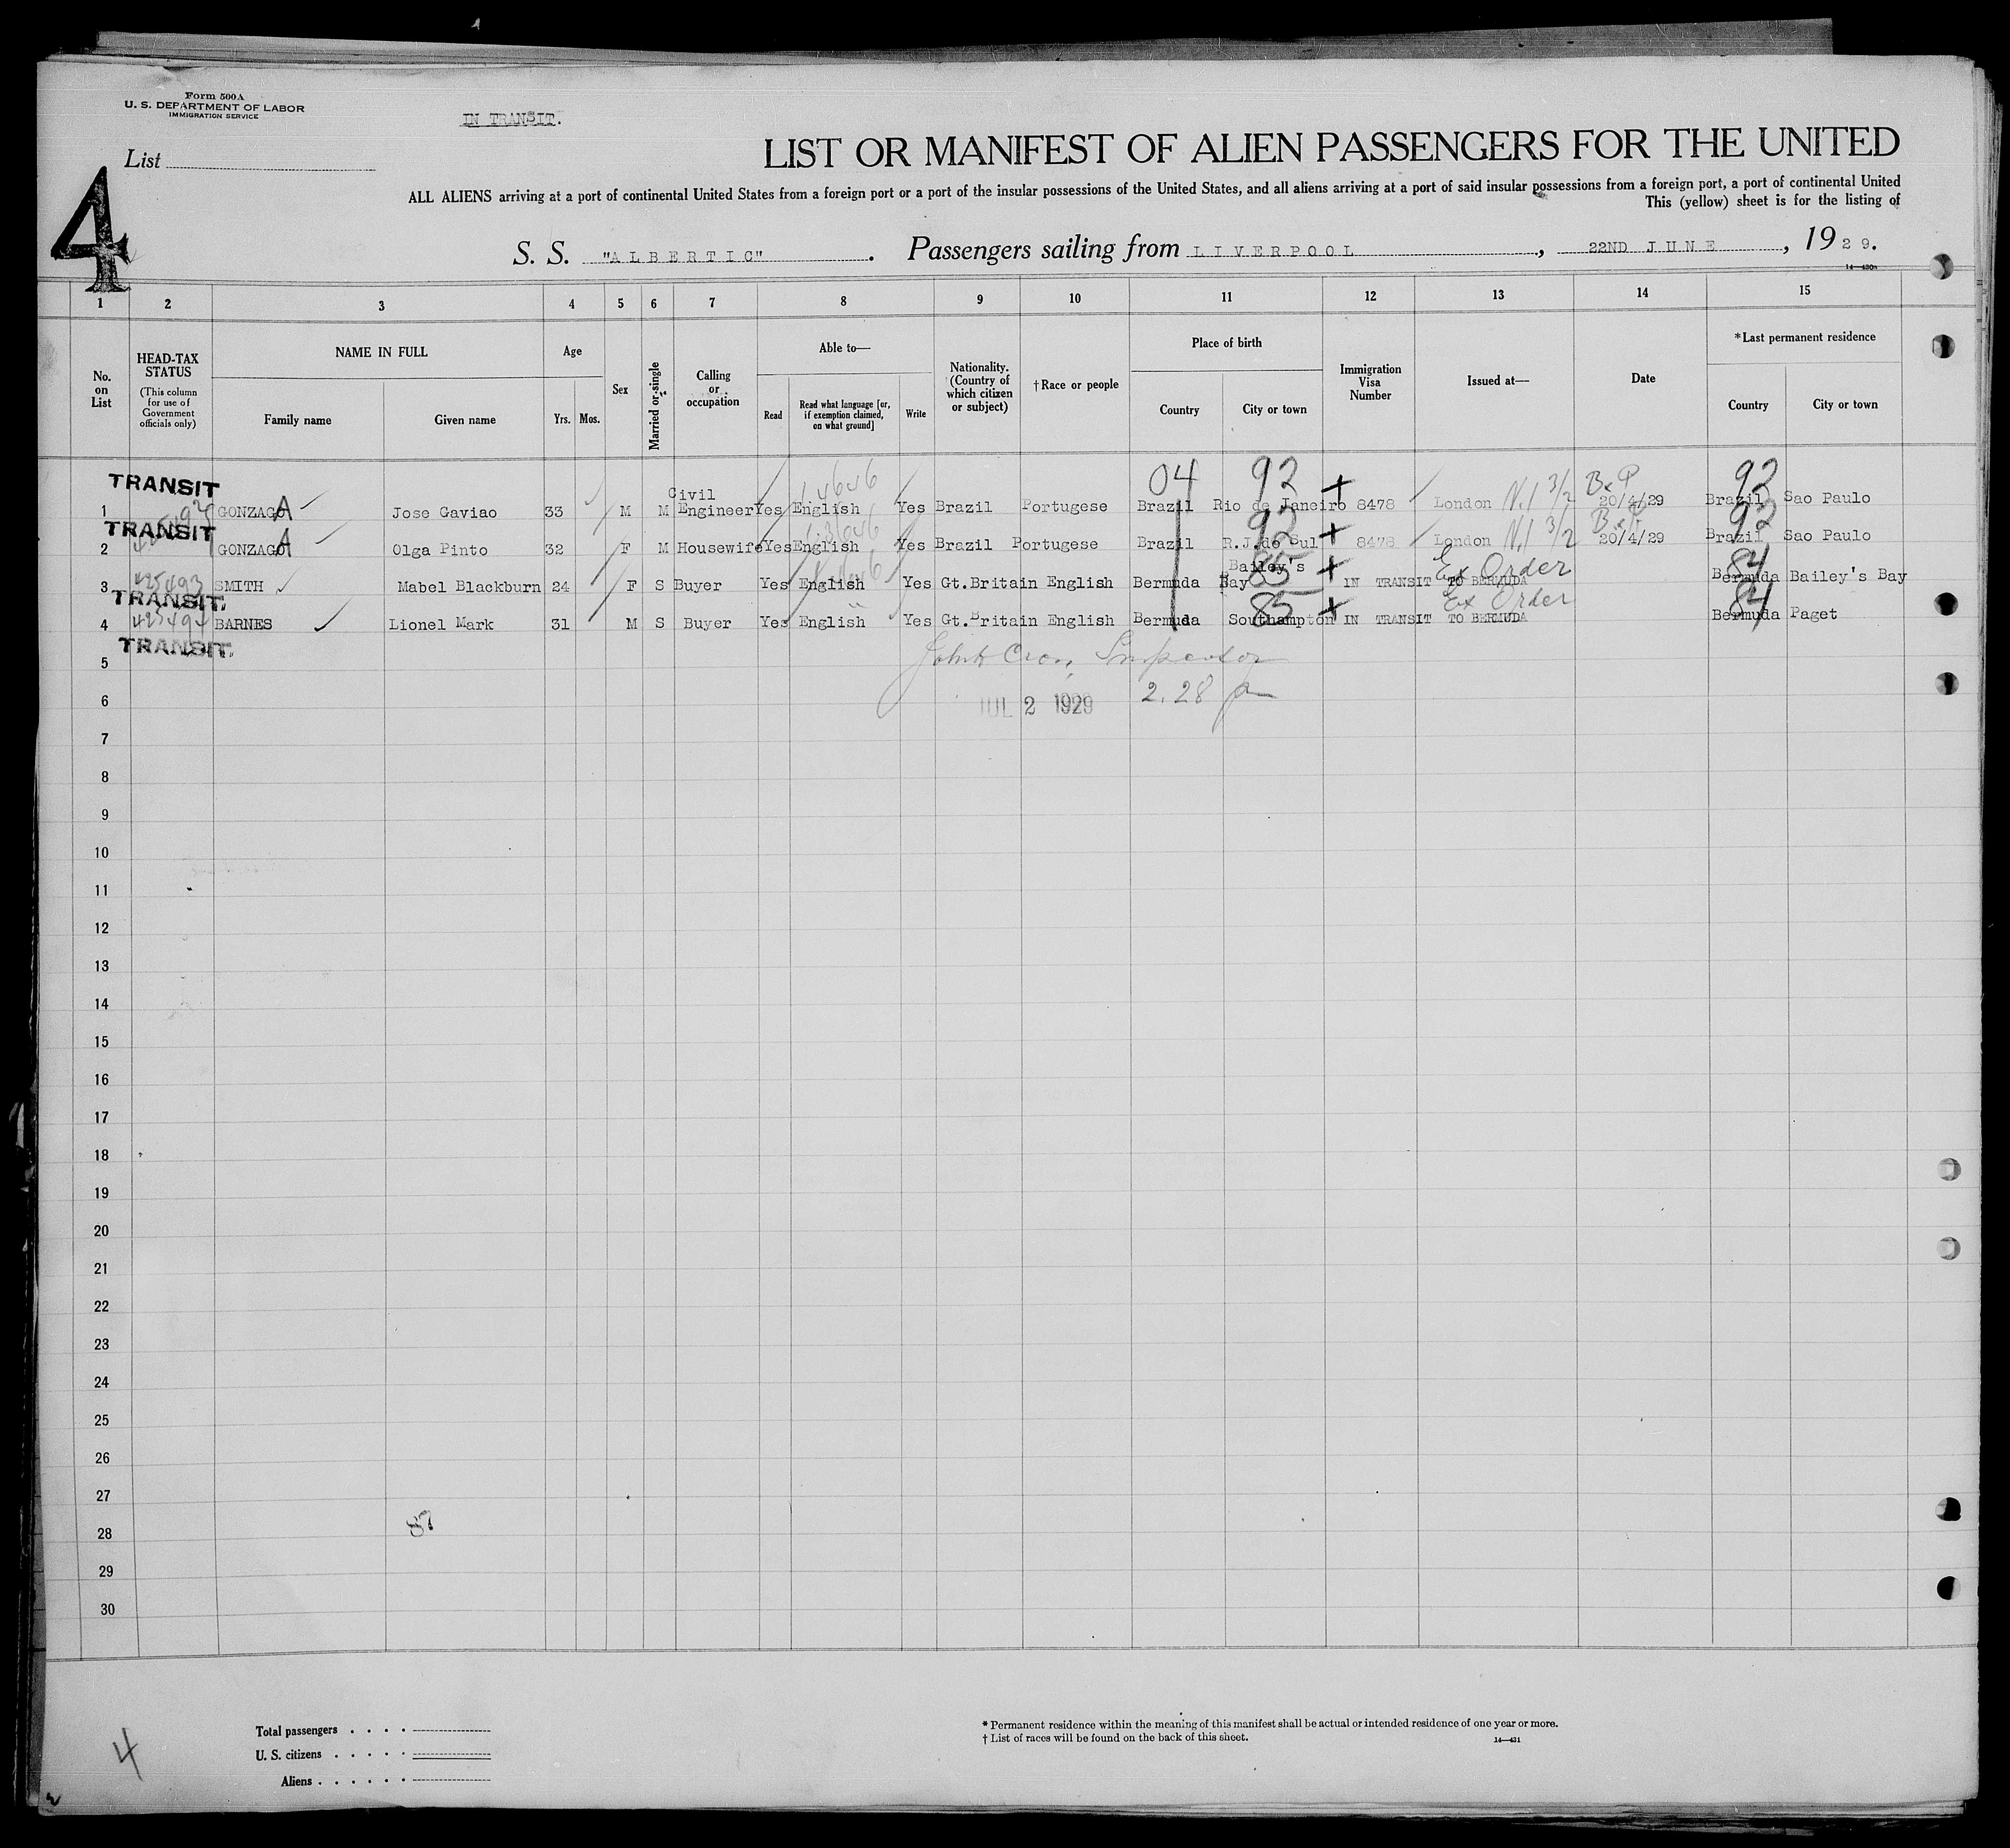 Form 500A
U. S. DEPARTMENT OF LABOR
IMMIGRATION SERVICE
IN TRANSIT.
List
4
LIST OR MANIFEST OF ALIEN PASSENGERS FOR THE UNITED
ALL ALIENS arriving at a port of continental United States from a foreign port or a port of the insular possessions of the United States, and all aliens arriving at a port of said insular possessions from a foreign port, a port of continental United
This (yellow) sheet is for the listing of
S. S. "ALBERTIC". Passengers sailing from LIVERPOOL, 22ND JUNE, 1929.
14—430a
1 2 3 4 5 6 7 8 9 10 11 12 13 14 15
No. on List
HEAD-TAX STATUS
(This column for use of Government officials only)
NAME IN FULL
Family name
Given name
Age
Yrs. Mos.
Sex
Married or single
Calling or occupation
Able to—
Read
Read what language [or, if exemption claimed, on what ground]
Write
Nationality. (Country of which citizen or subject)
†Race or people
Place of birth
Country
City or town
Immigration Visa Number
Issued at—
Date
*Last permanent residence
Country
City or town
TRANSIT 04 92 + 92
1 GONZAGO A Jose Gaviao 33 M M Civil Engineer Yes English Yes Brazil Portugese Brazil Rio de Janeiro 8478 London 3/2 20/4/29 Brazil Sao Paulo
TRANSIT 92 + 92
2 GONZAGO A Olga Pinto 32 F M Housewife Yes English Yes Brazil Portugese Brazil R.J.do Sul 8478 London 3/2 20/4/29 Brazil Sao Paulo
425493 85 + Ex Order 84
3 SMITH Mabel Blackburn 24 F S Buyer Yes English Yes Gt.Britain English Bermuda Bailey's Bay IN TRANSIT TO BERMUDA Bermuda Bailey's Bay
TRANSIT. 85 + Ex Order 84
425494
4 BARNES Lionel Mark 31 M S Buyer Yes English Yes Gt.Britain English Bermuda Southampton IN TRANSIT TO BERMUDA Bermuda Paget
TRANSIT.
5 Inspector
6 JUL 2 1929 2.28 pm
7
8
9
10
11
12
13
14
15
16
17
18
19
20
21
22
23
24
25
26
27
28 87
29
30
Total passengers . . . .
U. S. citizens . . . . .
Aliens . . . . . .
4
* Permanent residence within the meaning of this manifest shall be actual or intended residence of one year or more.
† List of races will be found on the back of this sheet.
14—431